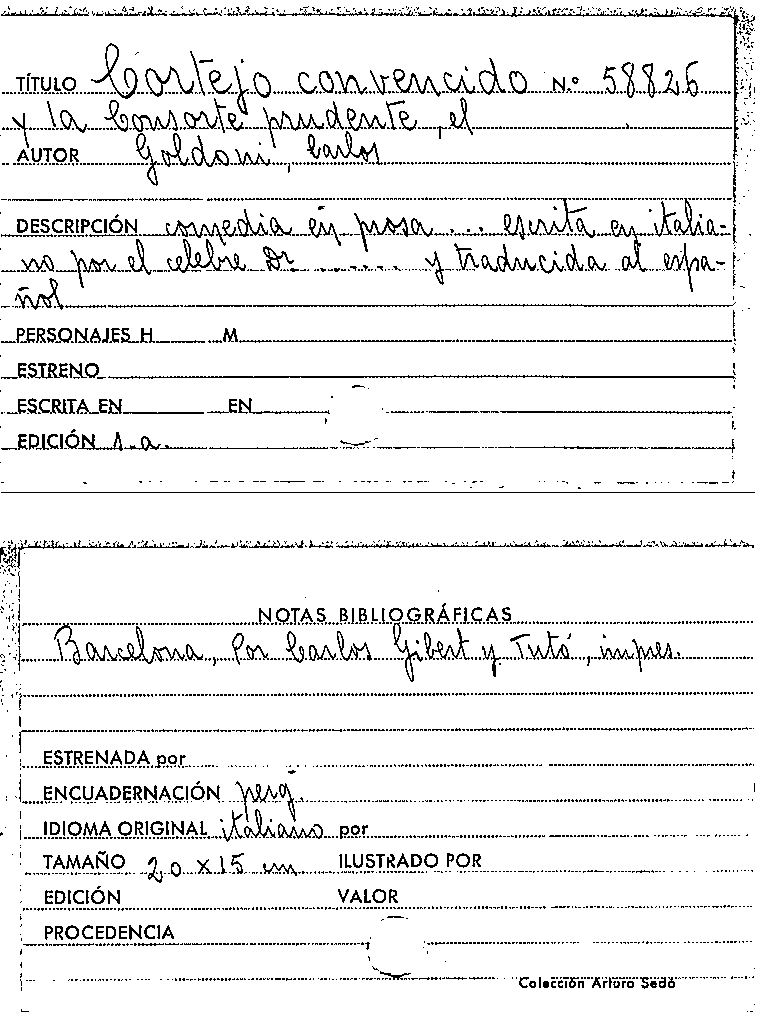 TÍTULO Cortejo convencido N.º 58826
y la Consorte prudente, el
AUTOR Goldoni, Carlos
DESCRIPCIÓN comedia en prosa ... escrita en italia-
no por el celebre Dr ...... y traducida al espa-
ñol
PERSONAJES H M
ESTRENO
ESCRITA EN EN
EDICIÓN s.a.
NOTAS BIBLIOGRÁFICAS
Barcelona, Por Carlos Gibert y Tutó, impres.
ESTRENADA por
ENCUADERNACIÓN perg.
IDIOMA ORIGINAL italiano por
TAMAÑO 20 x 15 cm ILUSTRADO POR
EDICIÓN VALOR
PROCEDENCIA
Colección Arturo Sedó